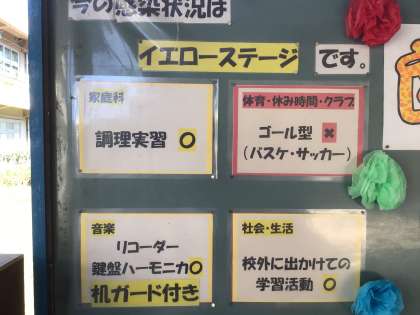 今の感染状況は
イエローステージ です。
家庭科
調理実習 〇
体育・休み時間・クラブ
ゴール型 ✖
（バスケ・サッカー）
音楽
リコーダー
鍵盤ハーモニカ〇
机ガード付き
社会・生活
校外に出かけての
学習活動 〇